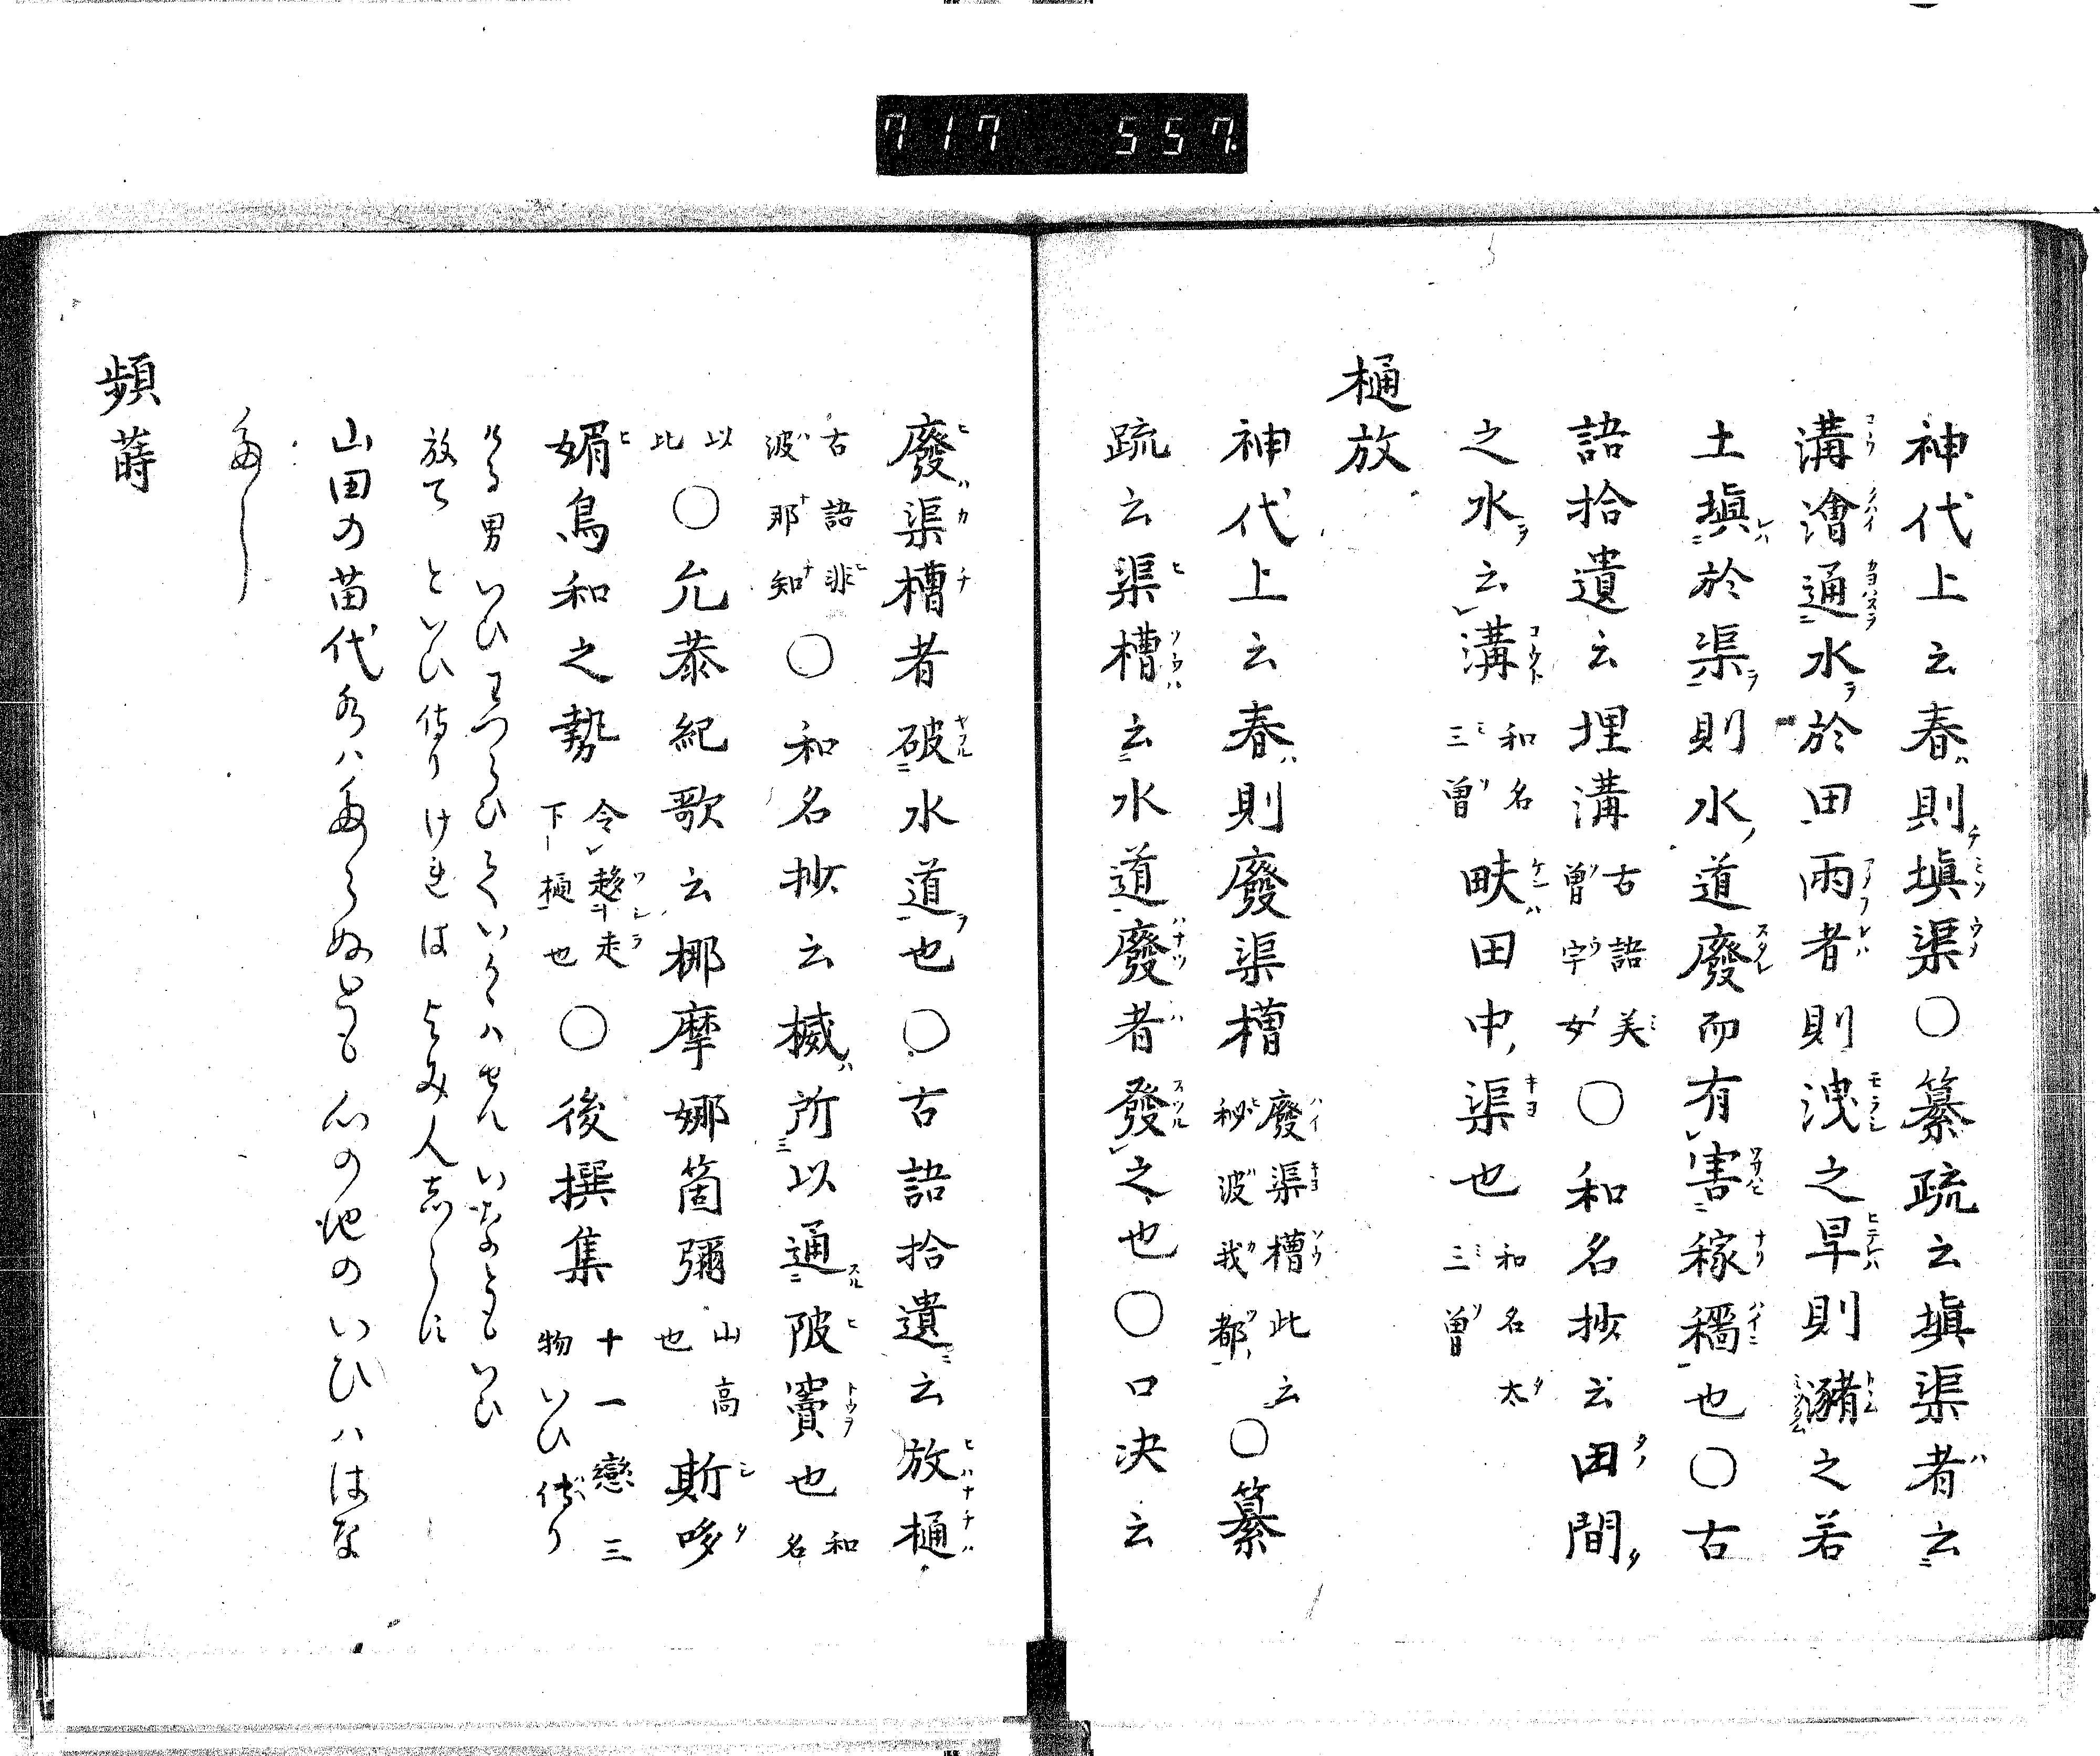 717 557
神代上云春則塡渠〇纂疏云塡渠者云
溝澮通水於田雨者則洩之旱則瀦之若
土塡於渠則水道廢而有害稼穡也〇古
語拾遺云埋溝古語美曽宇女〇和名抄云田間
之水云溝和名三曽畎田中渠也和名太三曽
樋放
神代上云春則廢渠槽廢渠槽此云秘波我都〇纂
疏云渠槽云水道廢者發之也〇口決云
廢渠槽者破水道也〇古語拾遺云放樋
古語非波那知〇和名抄云楲所以通陂竇也和名
以比〇允恭紀歌云椰摩娜箇彌山高也斯哆
媚烏和之勢令趍走下樋也〇後撰集十一戀三物いひ侍り
ける男いひわつらひていかゝハせんいなともいひ
放てといひ侍りけれはよみ人しらす
山田の苗代水ハたえぬとも心の池のいひハはな
たし
頻蒔